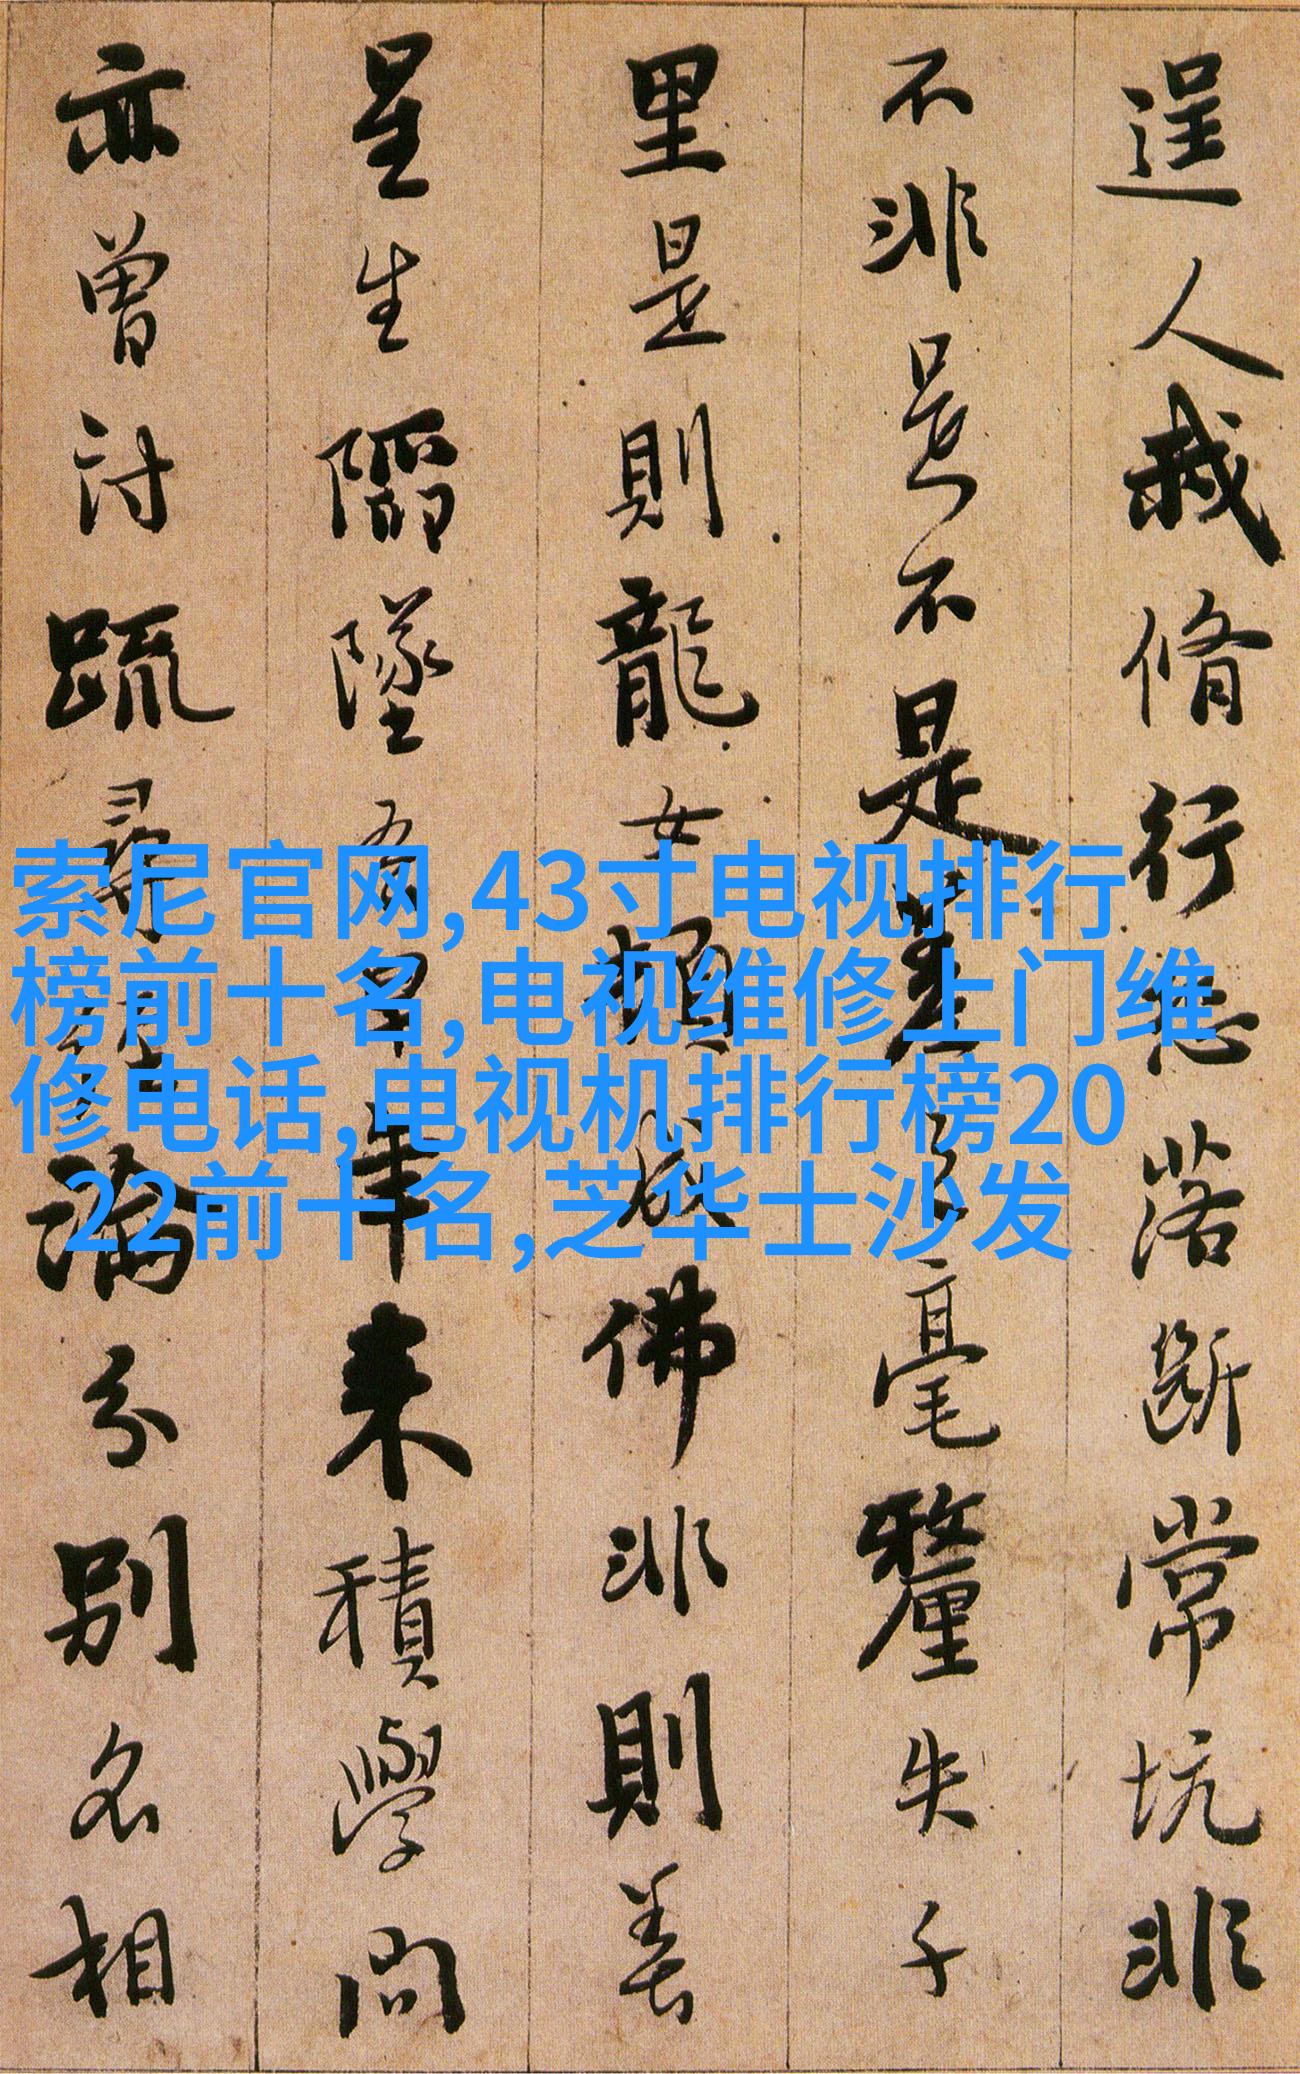 逞人我脩行恐落斷常坑非
不非是不是差之毫釐失千
里是則龍女頓成佛非則善
星生陷墜吾早年来積學問
亦曾討疏尋經論分別名相
索尼官网,43寸电视排行
榜前十名,电视维修上门维
修电话,电视机排行榜20
22前十名,芝华士沙发